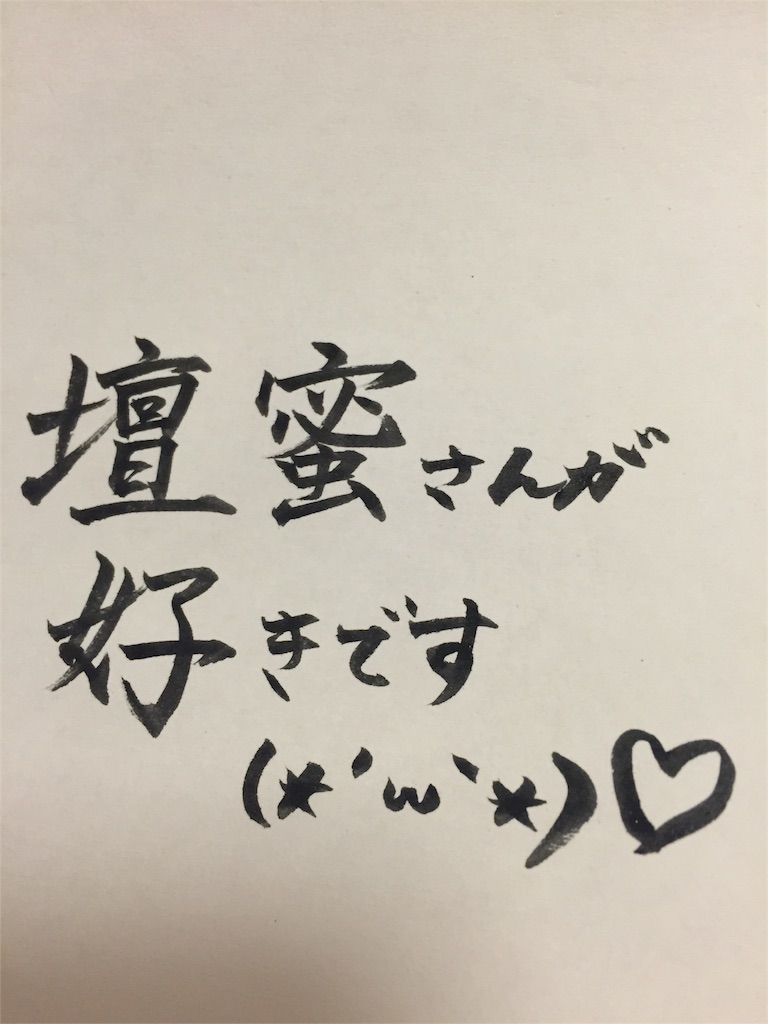 壇蜜さんが
好きです
(*´ω`*)♡